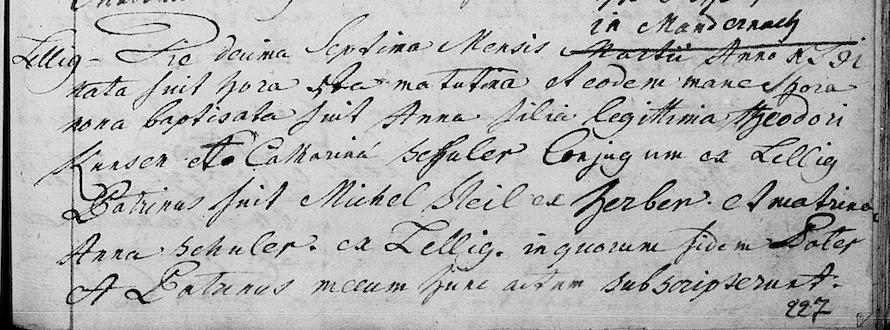 in Mandernach
Lellig - Die decima Septima Mensis Martii Anno
nata fuit hora 5ta matutina et eodem mane hora
nona baptisata fuit Anna filia legittima Theodori
Kunsen et Catharina Schuler Conjugum ex Lellig
Patrinus fuit Michel Keil ex Herber. et matrina
Anna Schuler. ex Lellig. in quorum fidem Pater
et Patrinus mecum hunc actum subscripserunt.
227